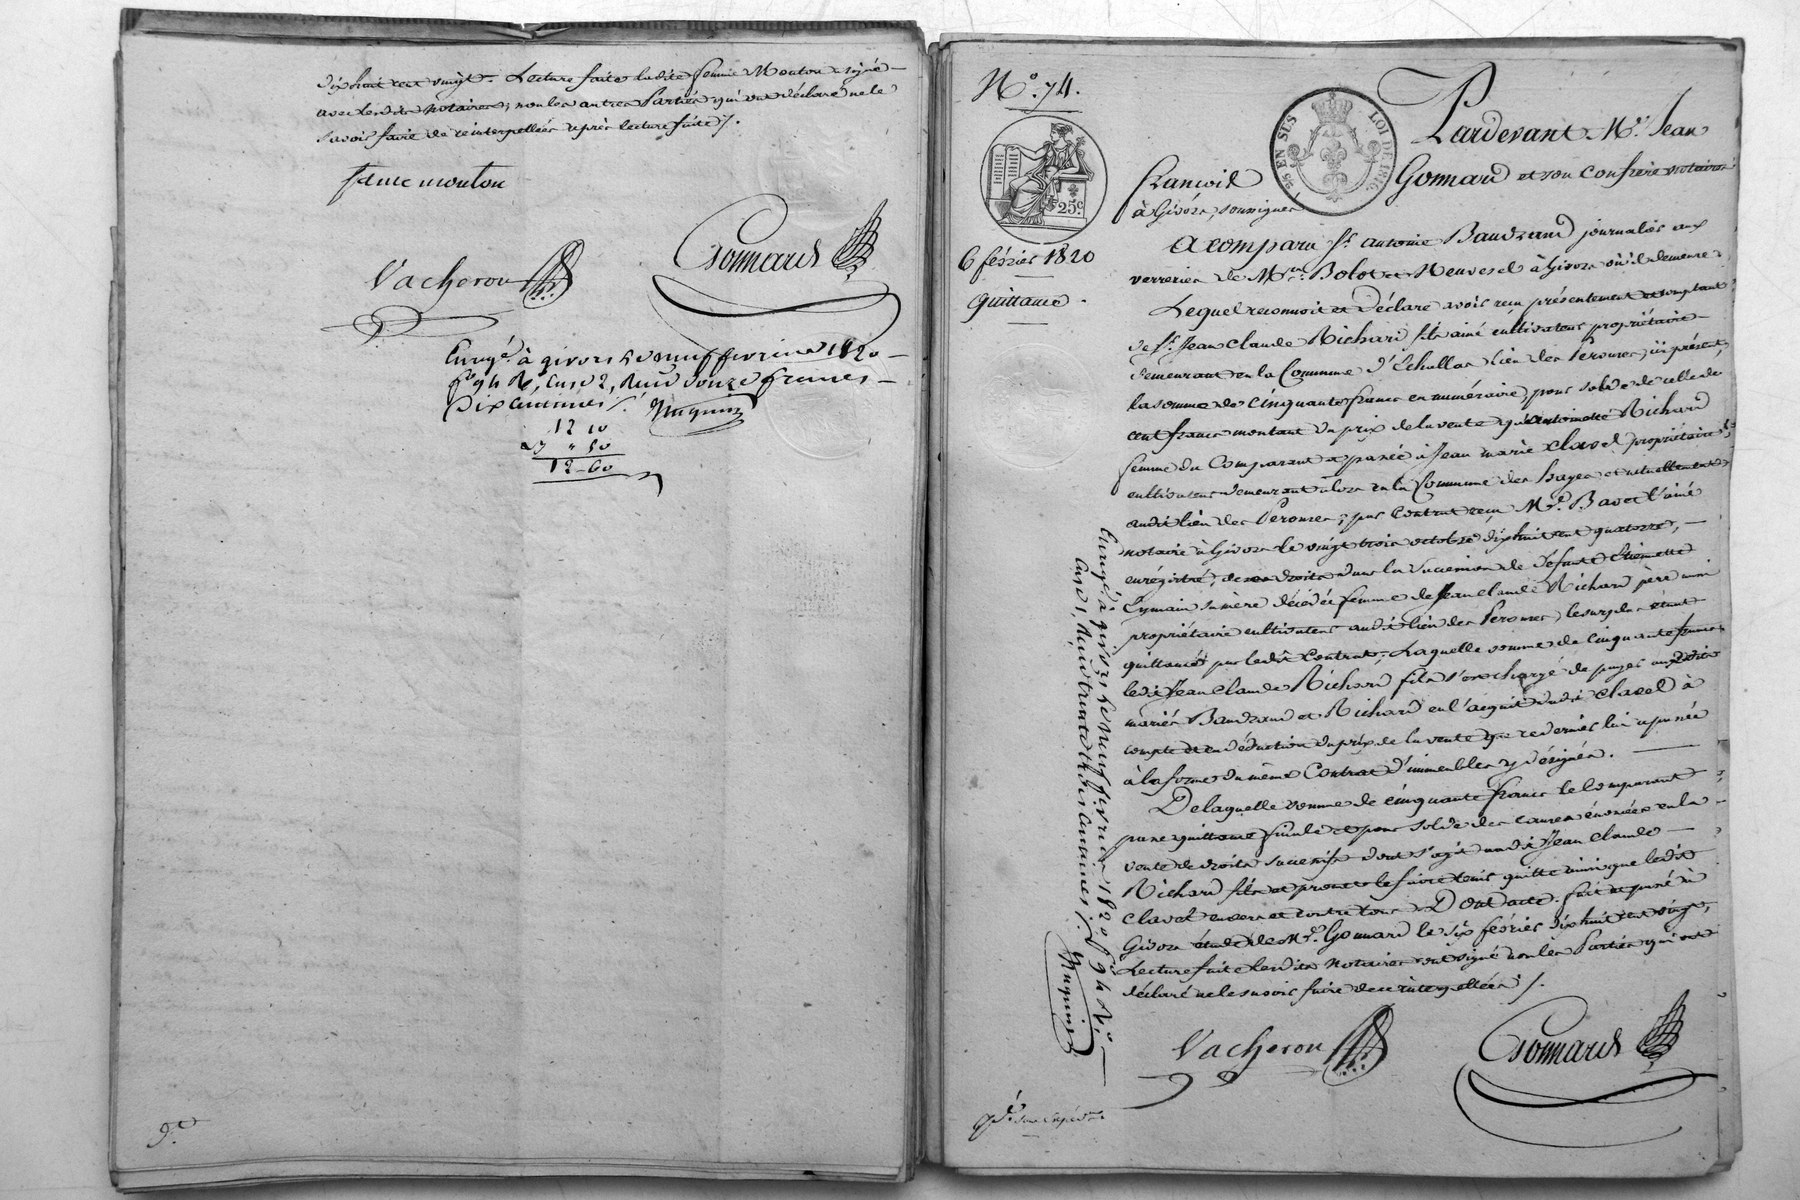 dixhuit cent vingt. Lecture faite ladite femme Mouton a signé
avec lesdits notaires, non les autres Parties qui ont déclaré ne le
savoir faire de ce interpellées après lecture faite /.
fame mouton
Vacheron
Gonnard
Enregé. à givors le neuf fevrier 1820
fo 94 Ro, Case 2, Reçu douze francs
dix centimes /.
12 10
" 50
12-60
N° 74.
25 c.
25 EN SUS
LOI DE 1816
Pardevant Me. Jean
François Gonnard et son confrere notaires
à Givors, soussignés
6 février 1820
Quittance.
A comparu Sr. antoine Baudrand journalier aux
verreries de Mrs. Bolot et Neuvesel à Givors où il demeure
Lequel reconnoit et Déclare avoir reçu présentement et comptant
de Sr. Jean Claude Richard fils ainé cultivateur propriétaire
demeurant en la Commune d'Echallas lieu des Perouses, ici présent,
la somme de Cinquante francs en numéraire, pour solde de celle de
cent francs montant du prix de la vente qu'antoinette Richard
femme du Comparant a passée à Jean marie Clavel propriétaire
cultivateur demeurant alors en la Commune des hayes et actuellement
audit lieu des Perouses, par Contrat reçu Me. Bavet l'ainé
notaire à Givors le vingt trois octobre dixhuit cent quatorze,
enrégistré, de ses droits dans la succession de défunte Etiennette
sa mère décédée femme de Jean Claude Richard père
propriétaire cultivateur audit lieu des Perouses, le surplus étant
quittancé par ledit Contrat; Laquelle somme de cinquante francs
ledit Jean Claude Richard fils s'est chargé de payer auxdits
mariés Baudrand et Richard en l'acquit dudit Clavel à
compte et en déduction du prix de la vente que ce dernier lui a passée
à la forme du même Contrat d'immeubles y désignés.
De laquelle somme de cinquante francs le Comparant
passe quittance finale et pour solde des causes énoncées en la
vente de droits successifs dont s'agit audit Jean Claude
Richard fils et promet le faire tenir quitte ainsi que ledit
Clavel envers et contre tous. Dont acte. fait et passé à
Givors étude de Me. Gonnard le six février dixhuit cent vingt,
Lecture faite lesdits notaires ont signé non les Parties qui ont
déclaré ne le savoir faire de ce interpellées /.
Vacheron
Gonnard
Enregé. à givors le neuf fevrier 1820 fo 94 Ro.
Case 1, Reçu trente centimes /.